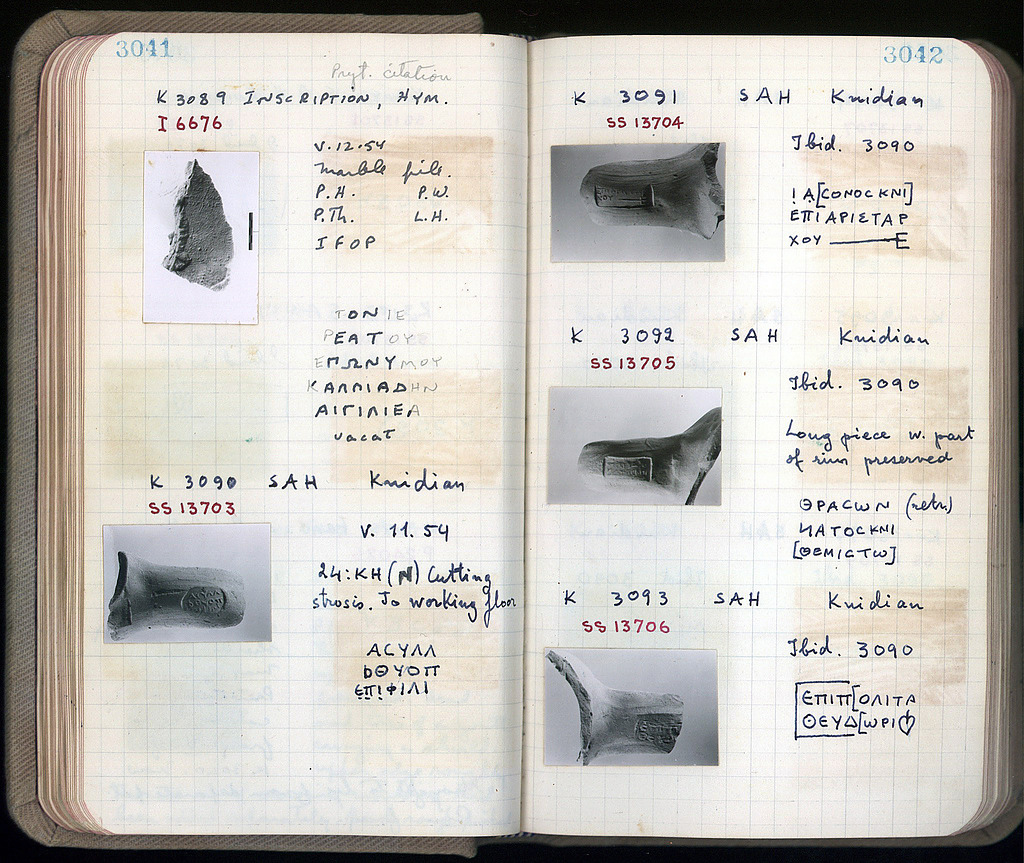 3041
Pryt. citation
K 3089 INSCRIPTION, HYM.
I 6676
V.12.54
Marble
P.H. P.W.
P.Th. L.H.
I FOP
ΤΟΝΙΕ
ΡΕΑΤΟΥ
ΕΠΩΝΥΜΟΥ
ΚΑΛΛΙΑΔΗΝ
ΑΙΓΙΛΙΕΑ
vacat
K 3090 SAH Knidian
SS 13703
V. 11.54
24:KH (N) Cutting
strosis. To working floor
ΑCΥΛΛ
ΘΥΟΠ
ΕΠΙΦΙΛΙ
3042
K 3091 SAH Knidian
SS 13704
Ibid. 3090
Ι Α[CΟΝΟC ΚΝΙ]
ΕΠΙΑΡΙΕΤΑΡ
ΧΟΥ
K 3092 SAH Knidian
SS 13705
Ibid. 3090
Long piece w. part
of rim preserved
ΘΡΑCΩΝ (retr.)
ΑΤΟC ΚΝΙ
[ΘΕΜΙCΤΩ]
K 3093 SAH Knidian
SS 13706
Ibid. 3090
ΕΠΙΠ[ΟΛΙΤΑ
ΘΕΥΔ[ΩΡΙ